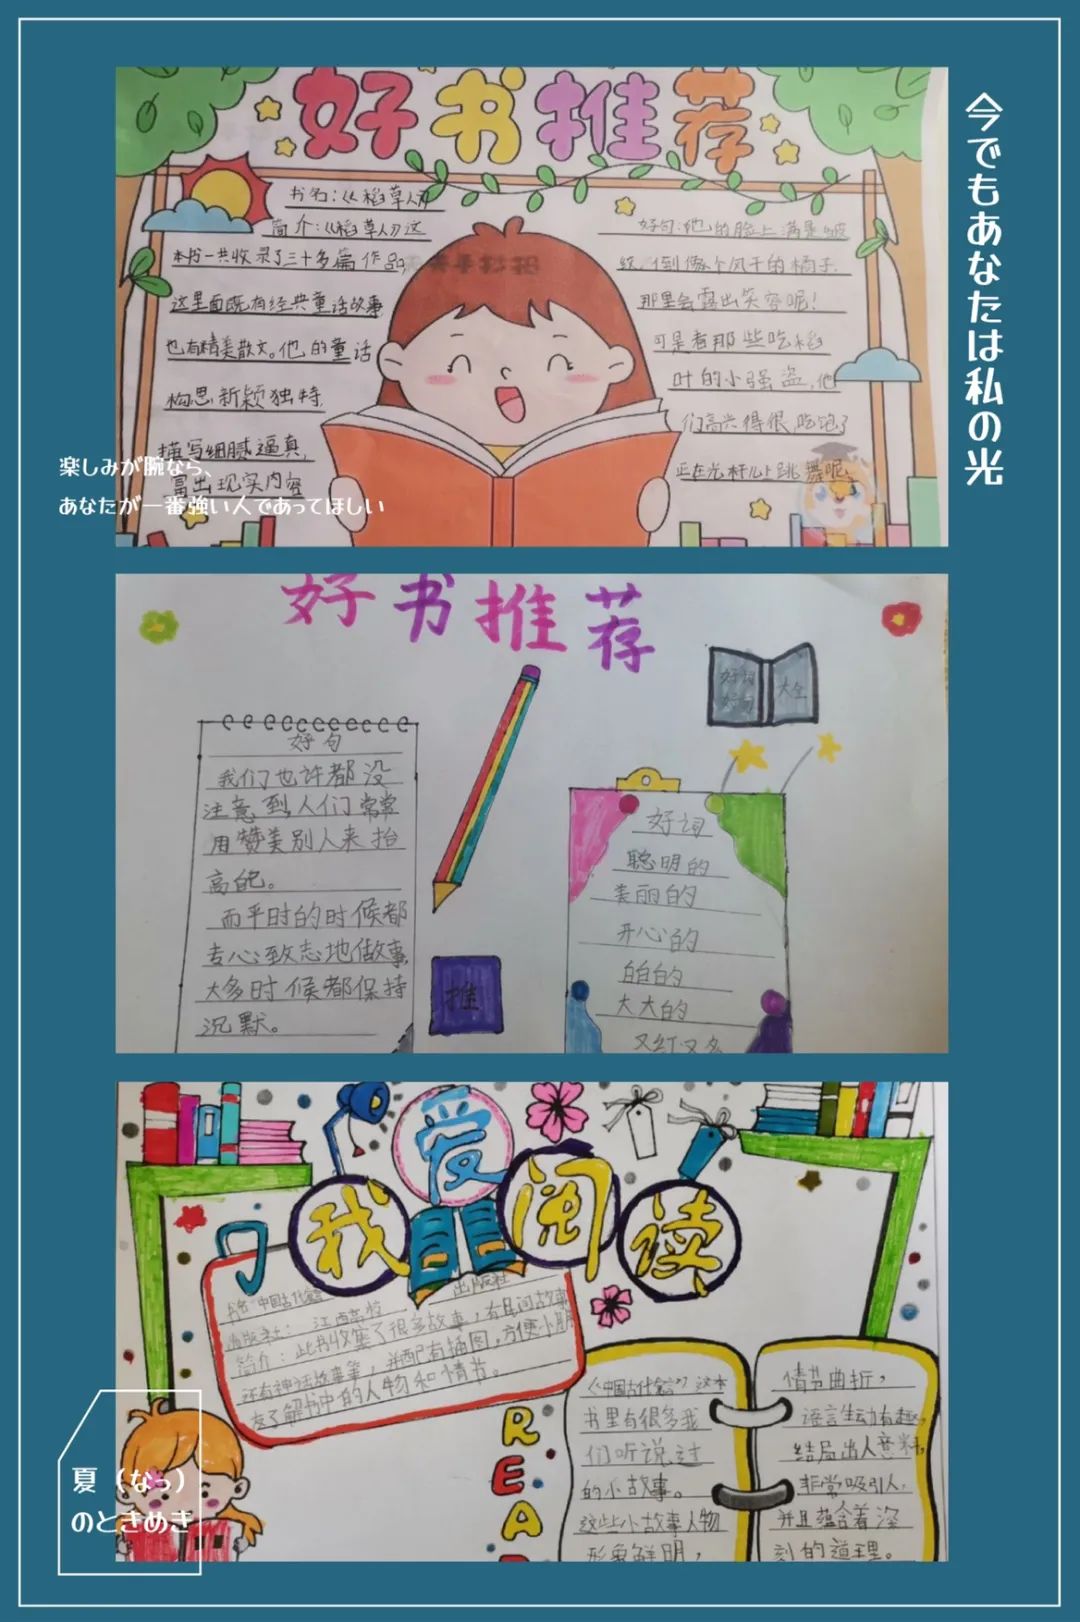 今でもあなたは私の光
好书推荐
书名:《稻草人》
简介:《稻草人》这
本书一共收录了三十多篇作品
这里面既有经典童话故事
也有精美散文。他的童话
构思新颖独特,
描写细腻逼真,
富出现实内容
好句:他的脸上满是皱
纹,
风干的橘子.
那里会露出笑容呢!
可是看那些吃稻
叶的小强盗,他
们高兴得很,吃饱了
正在光杆儿上跳舞呢。
楽しみが腕なら、
あなたが一番強い人であってほしい
好书推荐
好词
好句
大全
好句
我们也许都没
注意到,人们常常
用赞美别人来抬
高自己。
而平时的时候都
专心致志地做事,
大多时候都保持
沉默。
推
好词
聪明的
美丽的
开心的
白白的
大大的
又红又多
我爱阅读
书名:中国古代寓言
出版社
出版社: 江西高校
简介:此书收集了很多故事,有民间故事
还有神话故事等,并配有插图,方便小朋
友了解书中的人物和情节。
READ
《中国古代寓言》这本
书里有很多我
们听说过
的小故事。
这些小故事人物
形象鲜明,
情节曲折,
语言生动有趣,
结局出人意料,
非常吸引人,
并且蕴含着深
刻的道理。
夏(なっ)
のときめき